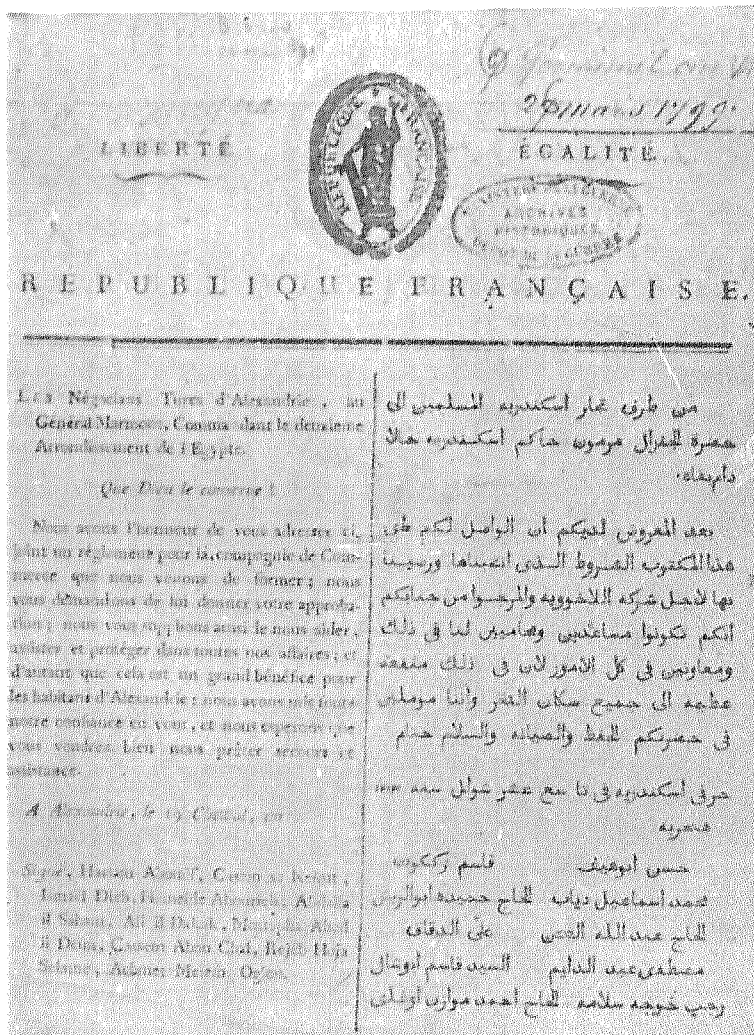 6 Germinal an
26 mars 1799.
LIBERTÉ
REPUBLIQUE FRANÇAISE
ÉGALITÉ.
ARCHIVES
HISTORIQUES
REPUBLIQUE FRANÇAISE.
Les Négocians Turcs d'Alexandrie, au
Général Marmont, Commandant le deuxième
Arrondissement de l'Égypte.
Que Dieu le conserve !
Nous avons l'honneur de vous adresser ci-
joint un réglement pour la compagnie de Com-
merce que nous venons de former ; nous
vous demandons de lui donner votre approba-
tion ; nous vous supplions aussi de nous aider,
assister et protéger dans toutes nos affaires ; et
d'autant que cela est un grand bénéfice pour
les habitans d'Alexandrie : nous avons mis toute
notre confiance en vous, et nous espérons que
vous voudrez bien nous prêter secours et
assistance.
A Alexandrie, le 19
Signé, Hassan
Ismail Diab,
il Salam, Ali il Dakak, Mustapha Abed
il Daim, Cassem Abou Chal, Rejeb Hoja
Selame, Achmet
من طرف تجار اسكندريه المسلمين الى
حضرة الجنرال مرمون حاكم اسكندريه حالا
دام بقاه.
بعد المعروض لديكم ان الواصل لكم طى
هذا المكتوب الشروط الذى
بها لاجل شركه والمرجوا من جنابكم
انكم تكونوا مساعدين وحاميين لنا فى ذلك
ومعاونين فى كل الامور لان فى ذلك منفعة
عظيمه الى جميع سكان الثغر واننا موملين
فى حضرتكم الحفظ والصيانه والسلام ختام
حرر فى اسكندريه فى تاسع عشر شوال سنه
هجريه
حسن ابوهيف قاسم
محمد اسماعيل دياب الحاج حميده ابوالريش
الحاج عبد الله على الدقاق
مصطفى عبد الدايم السيد قاسم ابوشال
رجب خوجه سلامه الحاج احمد